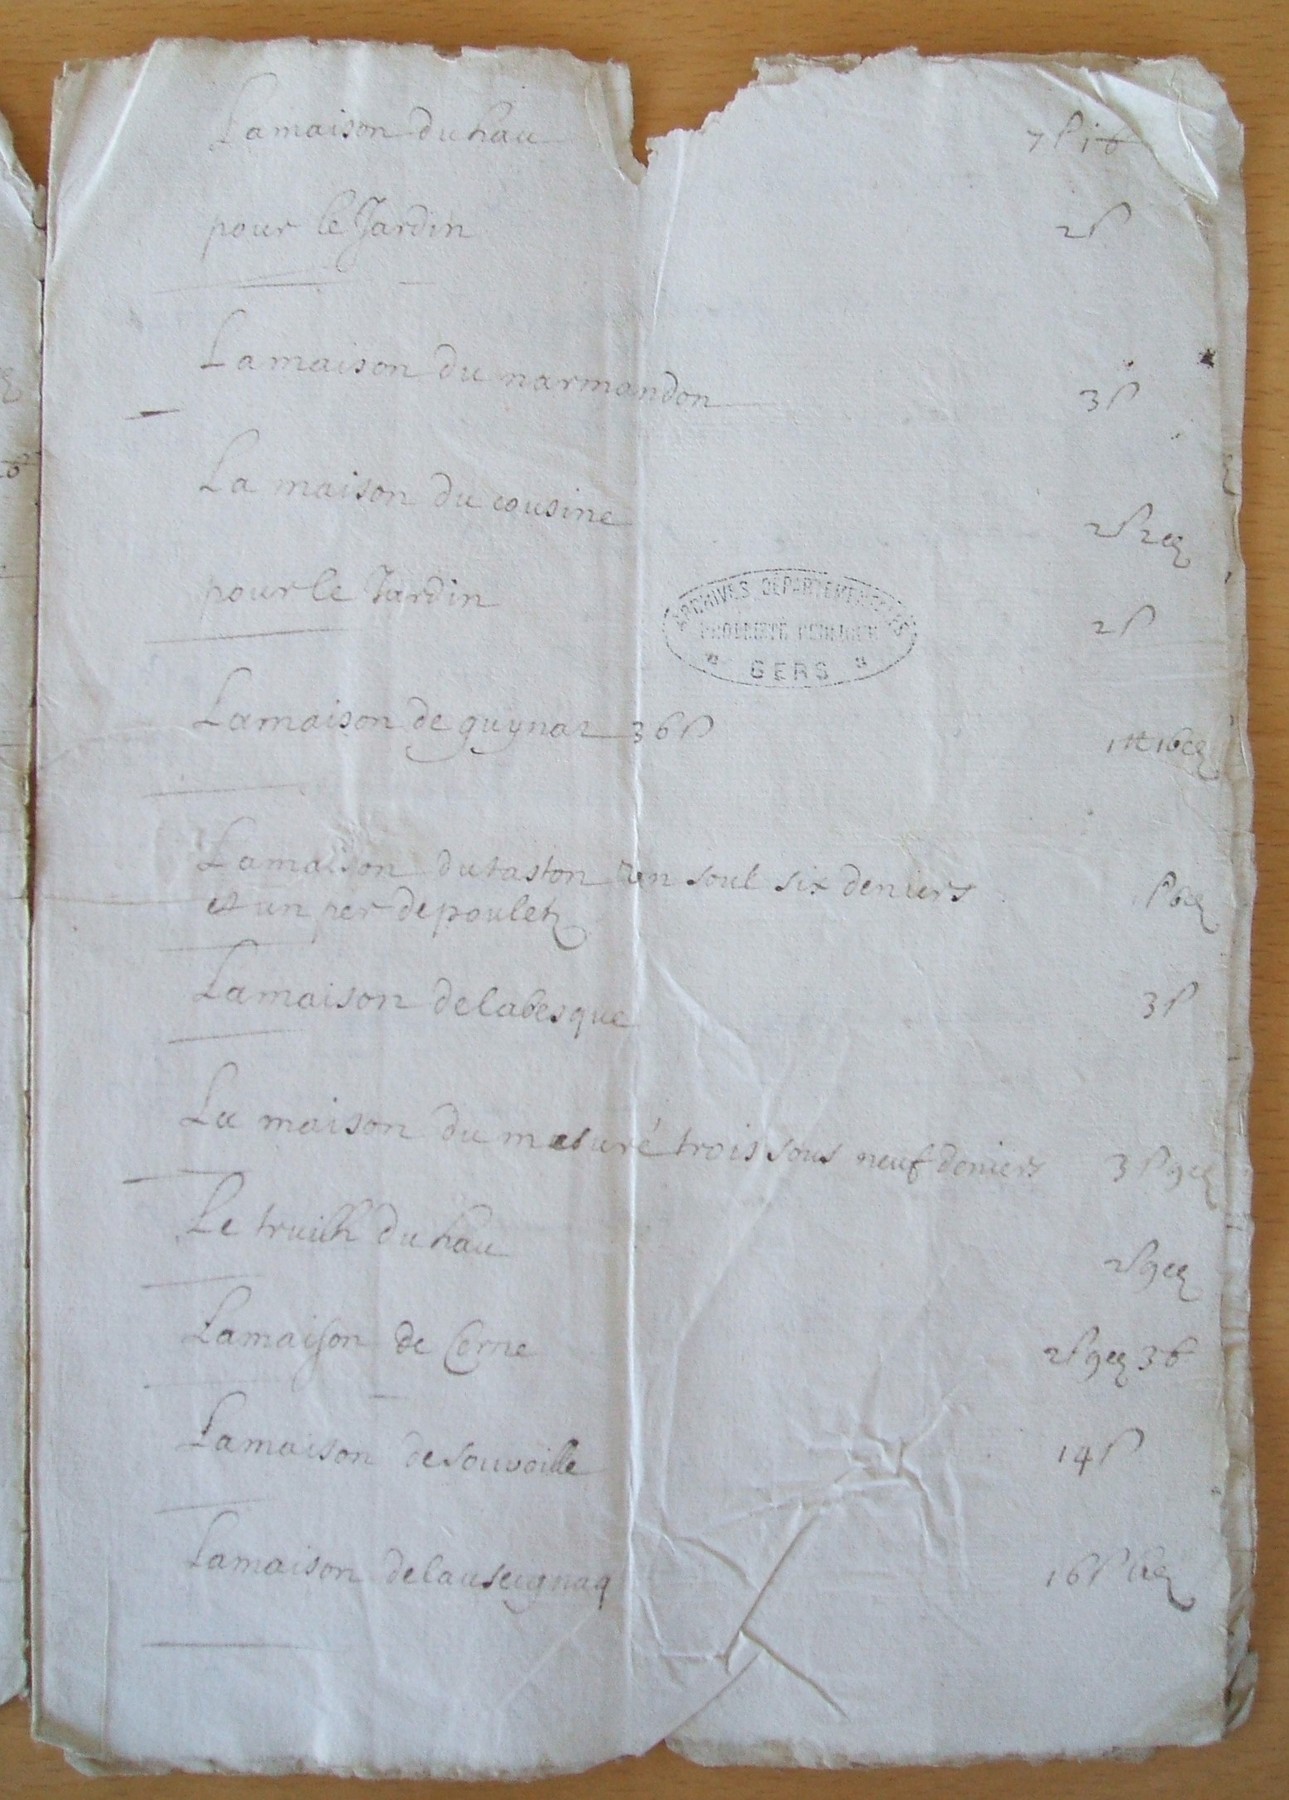 La maison du hau 7 s 1 6
pour le Jardin 2 s
La maison du narmandon 3 s
La maison du cousine 2 s 2 d
pour le Jardin 2 s
ARCHIVES DÉPARTEMENTALES
PROPRIÉTÉ PUBLIQUE
GERS
La maison de guynar 36 s 1 lt 16 d
La maison du taston un soul six deniers s 6 d
et un per de pouletz
La maison de labesque 3 s
La maison du masuré trois sous neuf deniers 3 s 9 d
Le truilh du hau 2 s 9 d
La maison de Cerne 2 s 9 d 3 6
La maison de souvoille 14 s
La maison de lauseignaq 16 s